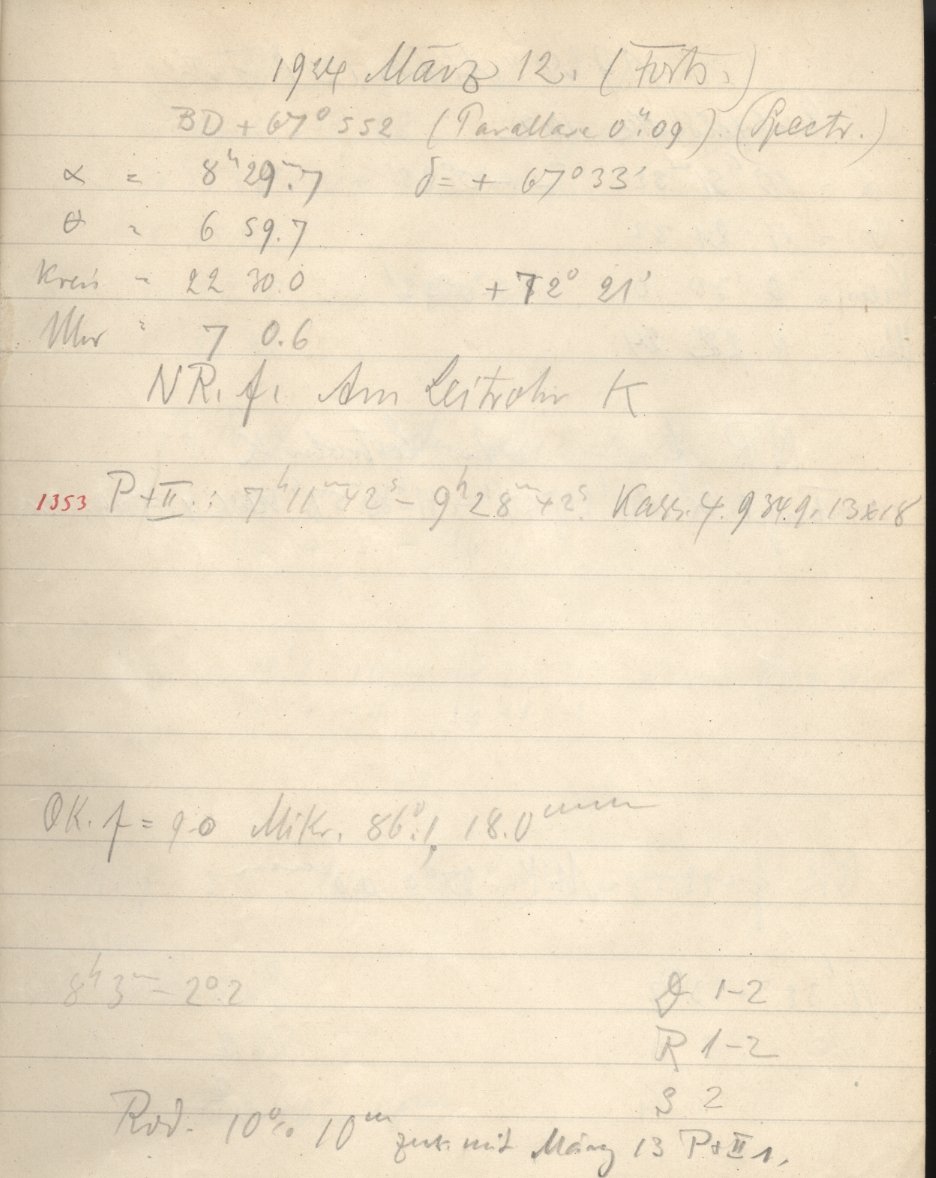 1924 März 12. (Forts.)
BD + 67° 552 (Parallaxe 0".09) (Spectr.)
α = 8h 29m.7 δ = + 67° 33'
θ = 6 59.7
Kreis = 22 30.0 + 72° 21'
Uhr = 7 0.6
NR. f. Am Leitrohr K
1353 P+II: 7h 11m 42s – 9h 28m 42s Kass. 4. 9 9. 13x18
OK. f = 90 Mikr. 86°.1, 18.0mm
8h 3m – 2°.2
D 1–2
R 1–2
S 2
Rod. 10% 10m mit März 13 P+II 1.